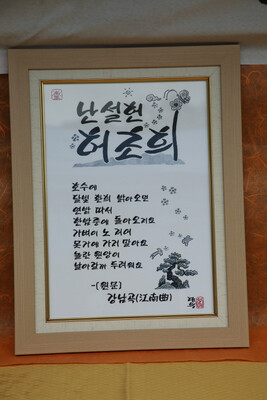 난설헌
허초희
호수에
달빛 밝아오면
연밥 따서
한밤중에 돌아오지요
가벼이 노 저어
물가에 가지 말아요
놀란 원앙이
날아갈까 두려워요
-(원문)
강남곡(江南曲)